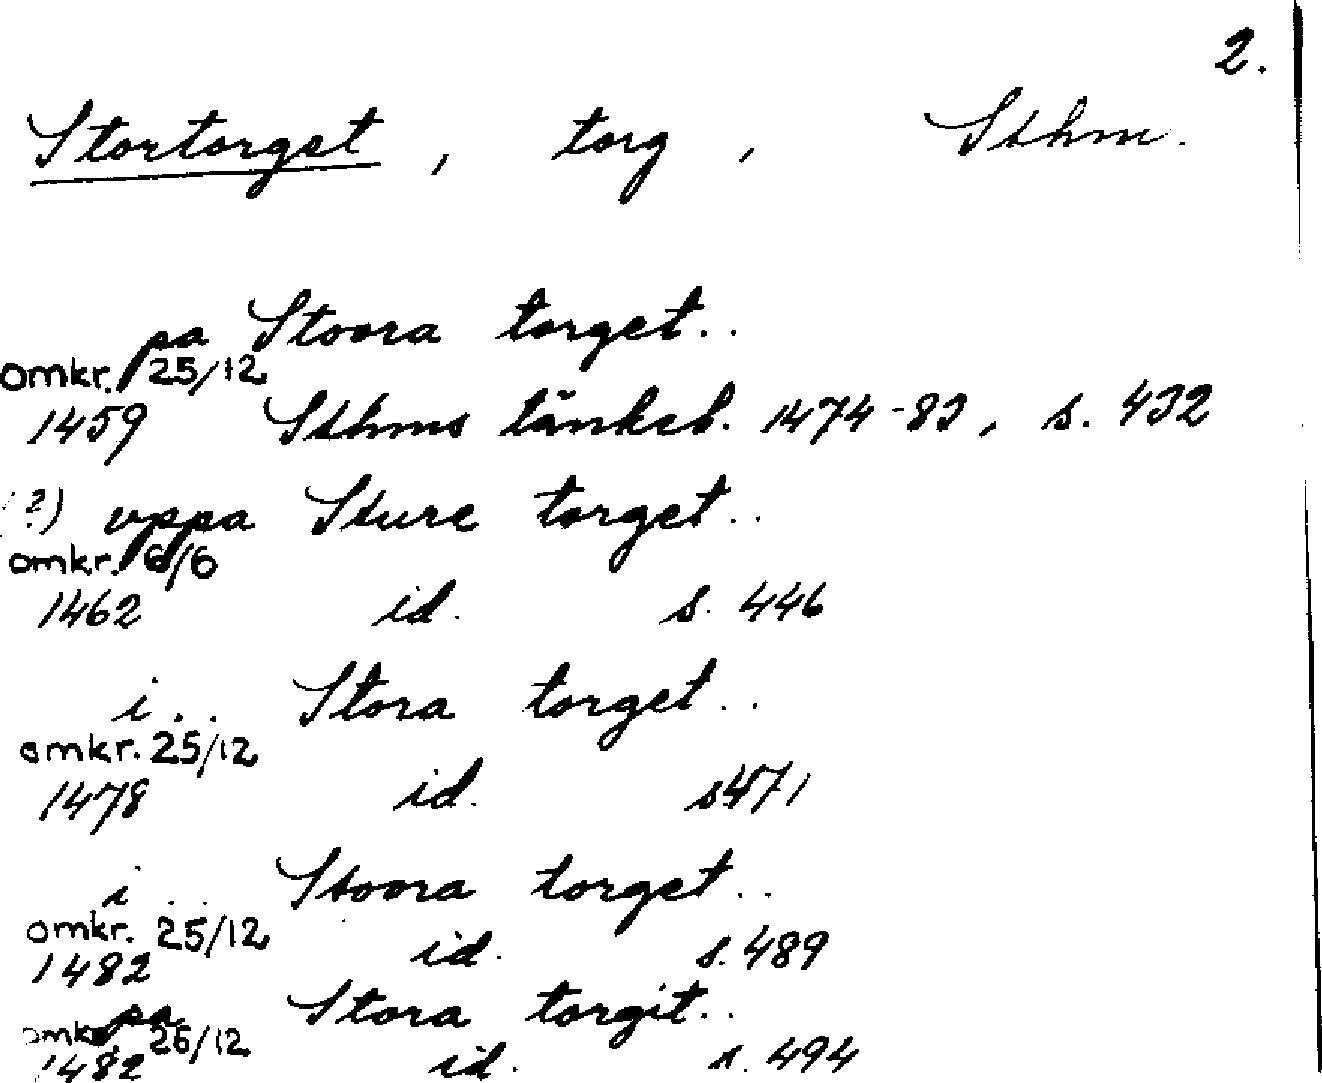 2.
Stortorget, torg, Sthm.
pa Stoora torget..
omkr. 25/12
1459 Sthms tänkeb. 1474-83, s. 432
(?) uppa Sture torget..
omkr. 6/6
1462 id. s. 446
i.. Stora torget..
omkr. 25/12
1478 id. s 471
i .. Stoora torget..
omkr. 25/12
1482 id. s. 489
pa Stora torgit..
omkr. 26/12
1482 id. s. 494